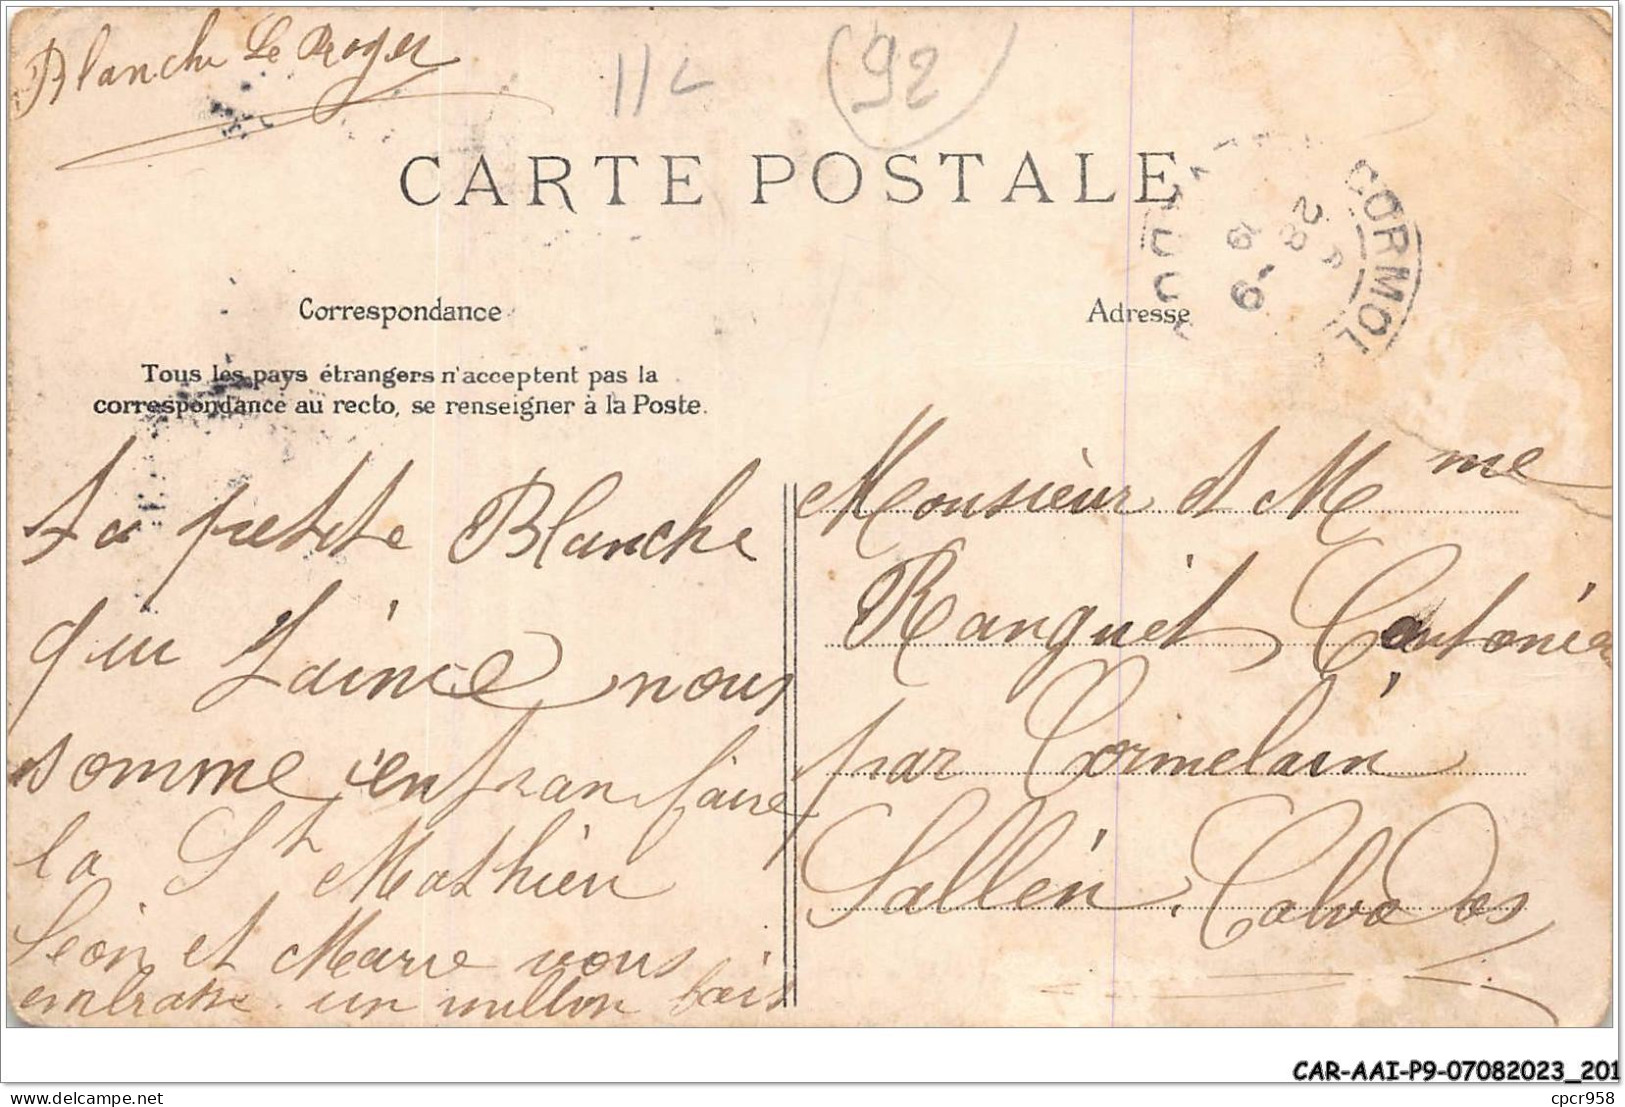 Blanche Le Royer
11c
92
CARTE POSTALE
CORMOL
28
9
19
Correspondance
Adresse
Tous les pays étrangers n'acceptent pas la
correspondance au recto, se renseigner à la Poste.
ta petite Blanche
qui t'aime nous
somme en tran faire
la St Mathieu
Léon et Marie vous
embrasse un million fois
Monsieur et Mme
Ranguet Cantonier
par Cormelain
Sallen. Calvados
CAR-AAI-P9-07082023_201
cpcr958